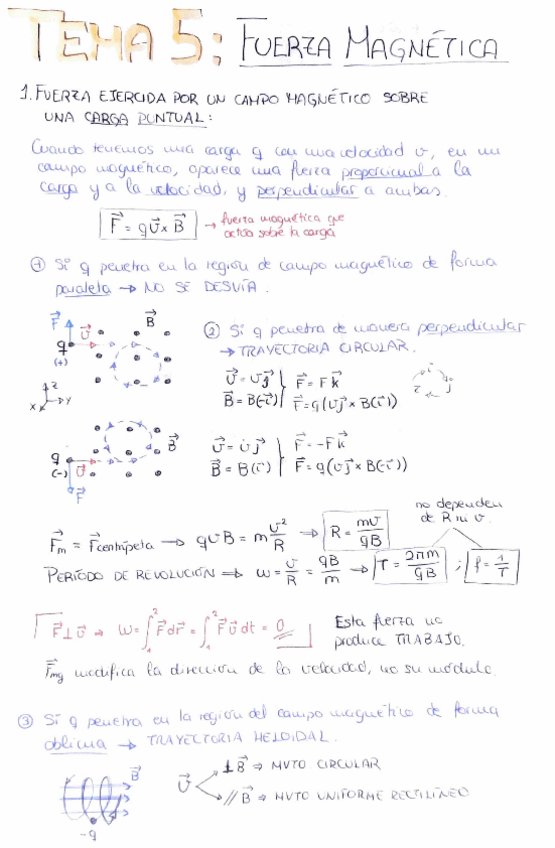 TEMA 5: FUERZA MAGNÉTICA
1. FUERZA EJERCIDA POR UN CAMPO MAGNÉTICO SOBRE
UNA CARGA PUNTUAL:
Cuando tenemos una carga q con una velocidad v, en un
campo magnético, aparece una fuerza proporcional a la
carga y a la velocidad, y perpendicular a ambas.
F⃗ = q v⃗ x B⃗ → fuerza magnética que
actúa sobre la carga
① Si q penetra en la región de campo magnético de forma
paralela → NO SE DESVÍA.
F⃗ v⃗ B⃗
q
(+)
z
x y
② Si q penetra de manera perpendicular
→ TRAYECTORIA CIRCULAR.
v⃗ = v j⃗ } F⃗ = F k⃗
B⃗ = B(-i⃗) } F⃗ = q(v j⃗ x B(-i⃗))
q
(-) v⃗ B⃗
F⃗
v⃗ = v j⃗ } F⃗ = -F k⃗
B⃗ = B(i⃗) } F⃗ = q(v j⃗ x B(-i⃗))
no dependen
de R ni v.
F⃗m = F⃗centrípeta → qvB = m v²/R → R = mv/qB
PERÍODO DE REVOLUCIÓN → ω = v/R = qB/m → T = 2πm/qB ; f = 1/T
F⃗ ⊥ v⃗ → W = ∫₁² F⃗ dr⃗ = ∫₁² F⃗ v⃗ dt = 0
Esta fuerza no
produce TRABAJO.
F⃗mg modifica la dirección de la velocidad, no su módulo.
③ Si q penetra en la región del campo magnético de forma
oblicua → TRAYECTORIA HELOIDAL.
B⃗
-q
v⃗
⊥ B⃗ ⇒ MVTO CIRCULAR
// B⃗ ⇒ MVTO UNIFORME RECTILÍNEO